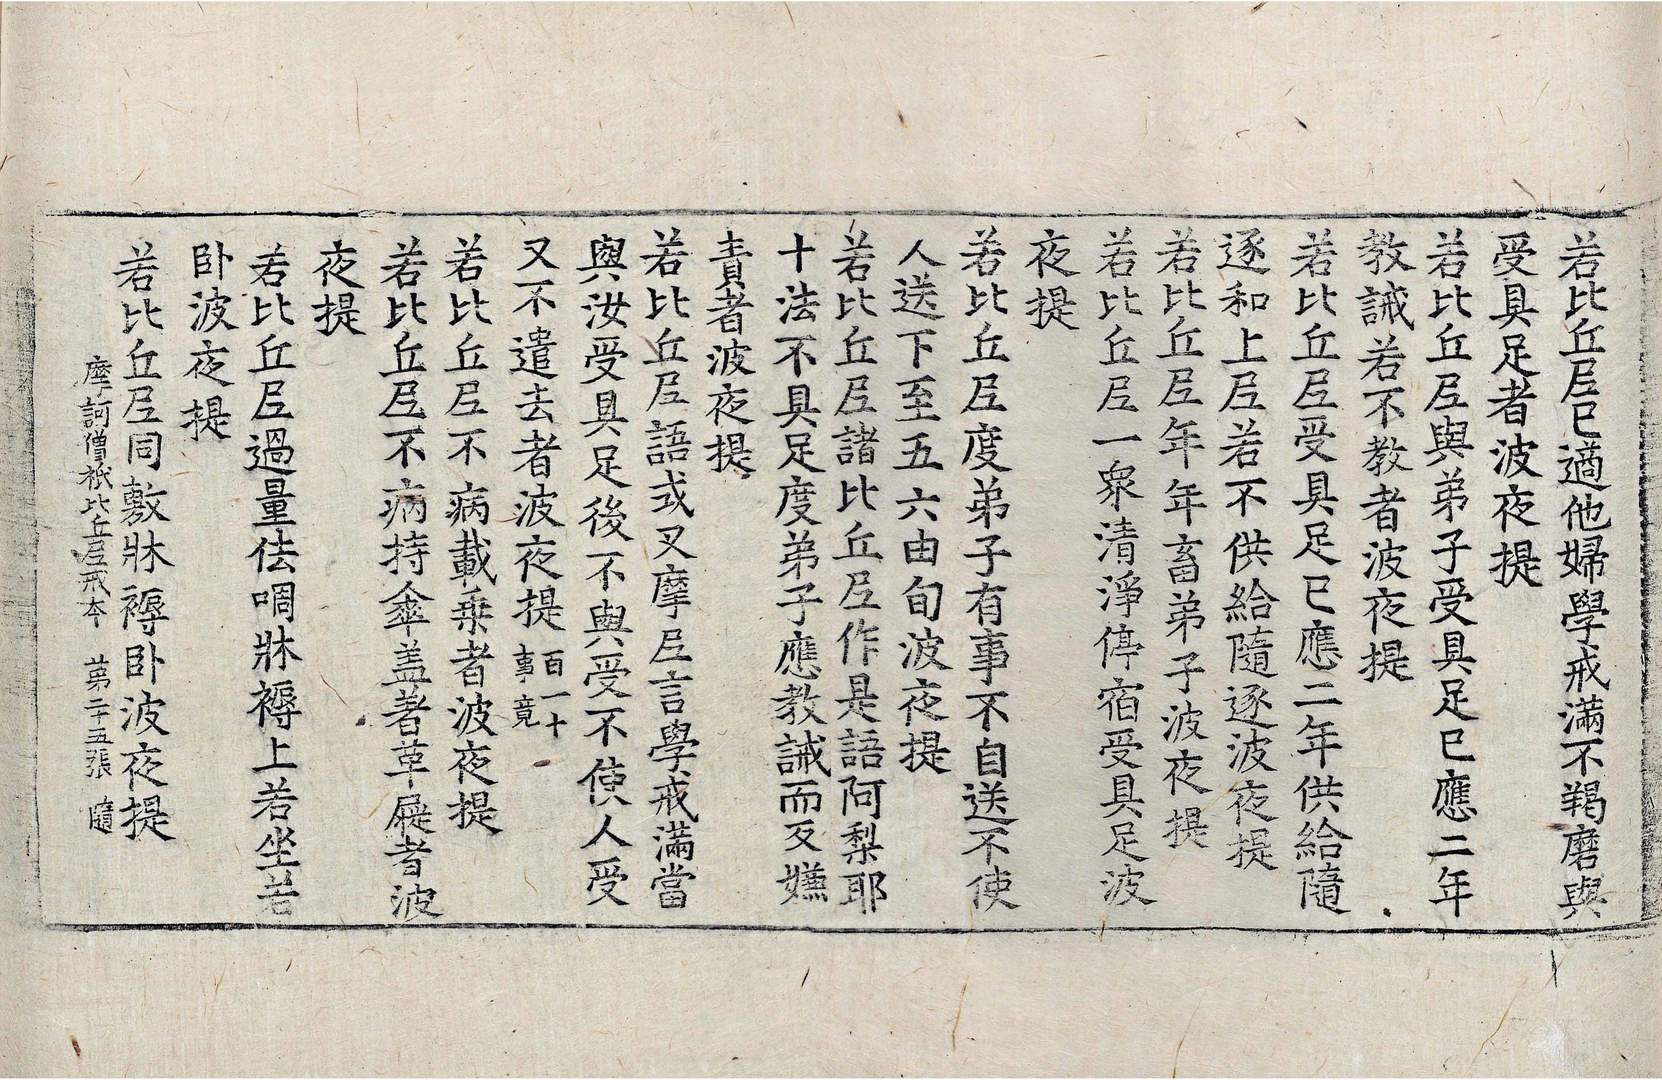 若比丘尼已適他婦學戒滿不羯磨與
受具足者波夜提
若比丘尼與弟子受具足已應二年
教誡若不教者波夜提
若比丘尼受具足已應二年供給隨
逐和上尼若不供給隨逐波夜提
若比丘尼年年畜弟子波夜提
若比丘尼一衆清淨停宿受具足波
夜提
若比丘尼度弟子有事不自送不使
人送下至五六由旬波夜提
若比丘尼諸比丘尼作是語阿梨耶
十法不具足度弟子應教誡而反嫌
責者波夜提
若比丘尼語式叉摩尼言學戒滿當
與汝受具足後不與受不使人受
又不遣去者波夜提百一十事竟
若比丘尼不病載乗者波夜提
若比丘尼不病持傘盖著革屣者波
夜提
若比丘尼過量佉啁牀褥上若坐若
卧波夜提
若比丘尼同敷牀褥卧波夜提
摩訶僧祇比丘尼戒本 第二十五張 隨